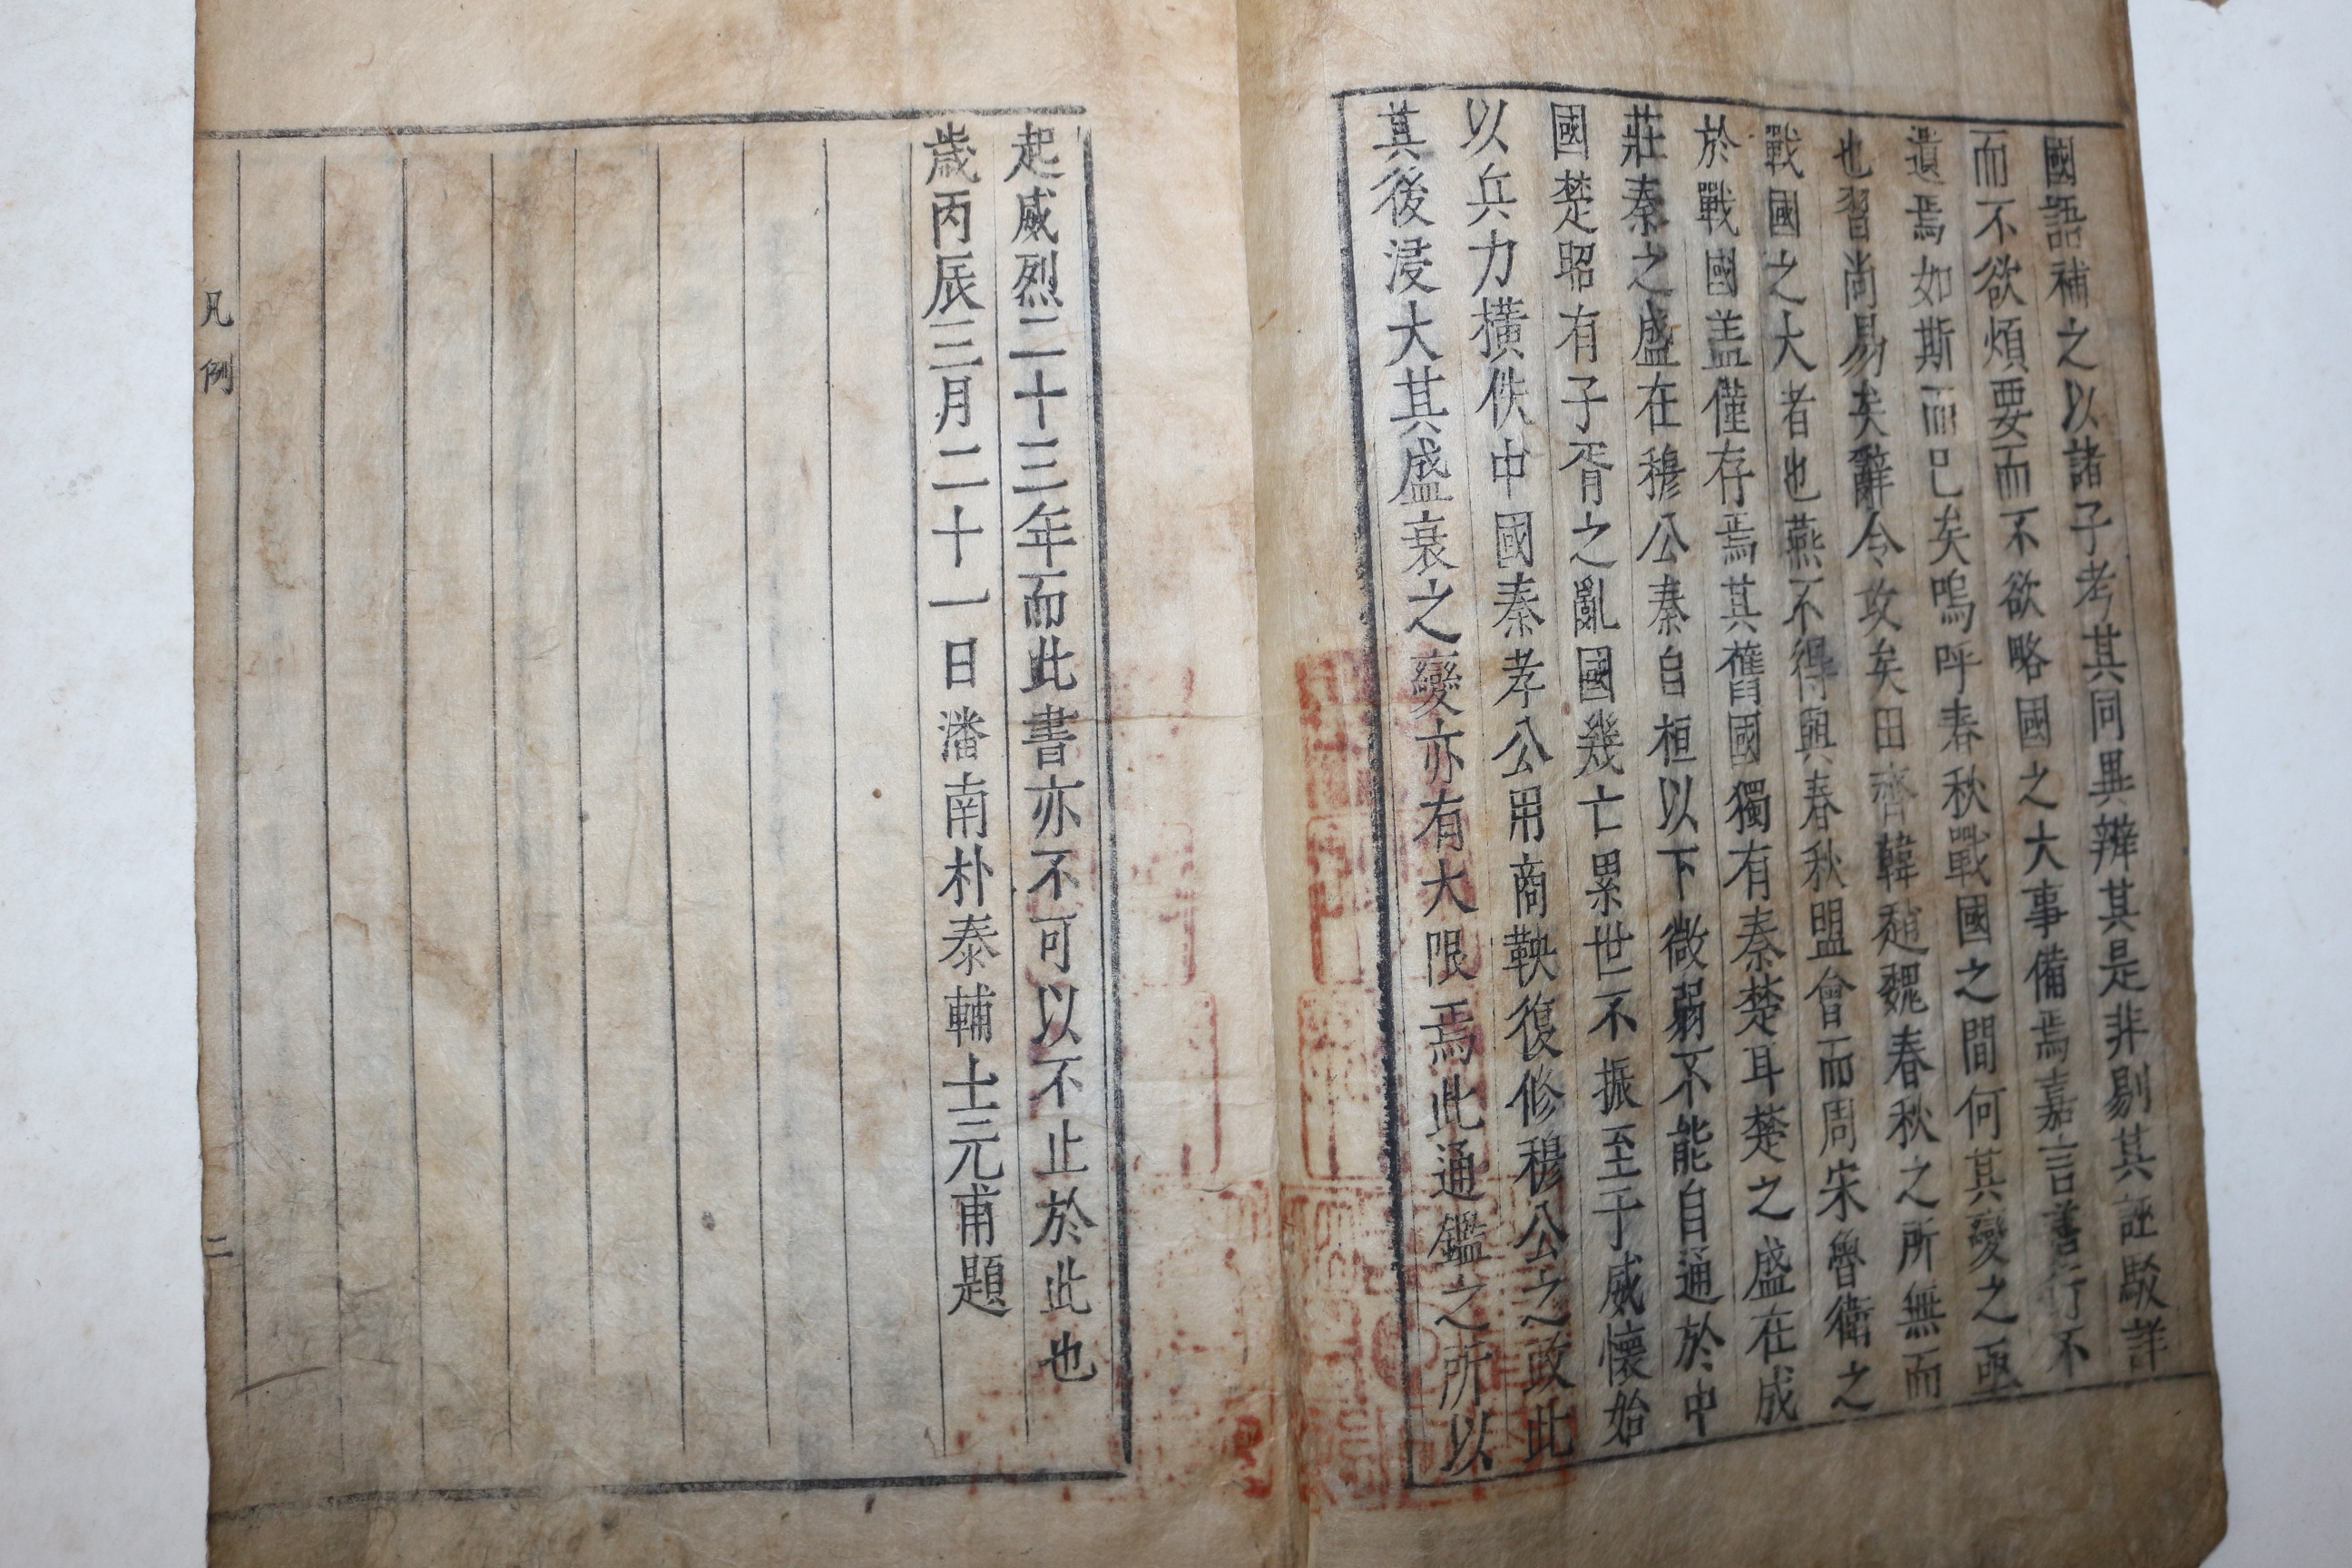 國語補之以諸子考其同異辨其是非剔其誣駁詳
而不欲煩要而不欲略國之大事備焉嘉言善行不
遺焉如斯而已矣嗚呼春秋戰國之間何其變之亟
也習尚易矣辭令攻矣田齊韓趙魏春秋之所無而
戰國之大者也燕不得與春秋盟會而周宋魯衛之
於戰國盖僅存焉其舊國獨有秦楚耳楚之盛在成
莊秦之盛在穆公秦自桓以下微弱不能自通於中
國楚昭有子胥之亂國幾亡累世不振至于威懷始
以兵力橫佚中國秦孝公用商鞅復修穆公之政此
其後浸大其盛衰之變亦有大限焉此通鑑之所以
起威烈二十三年而此書亦不可以不止於此也
歲丙辰三月二十一日潘南朴泰輔士元甫題
凡例
二